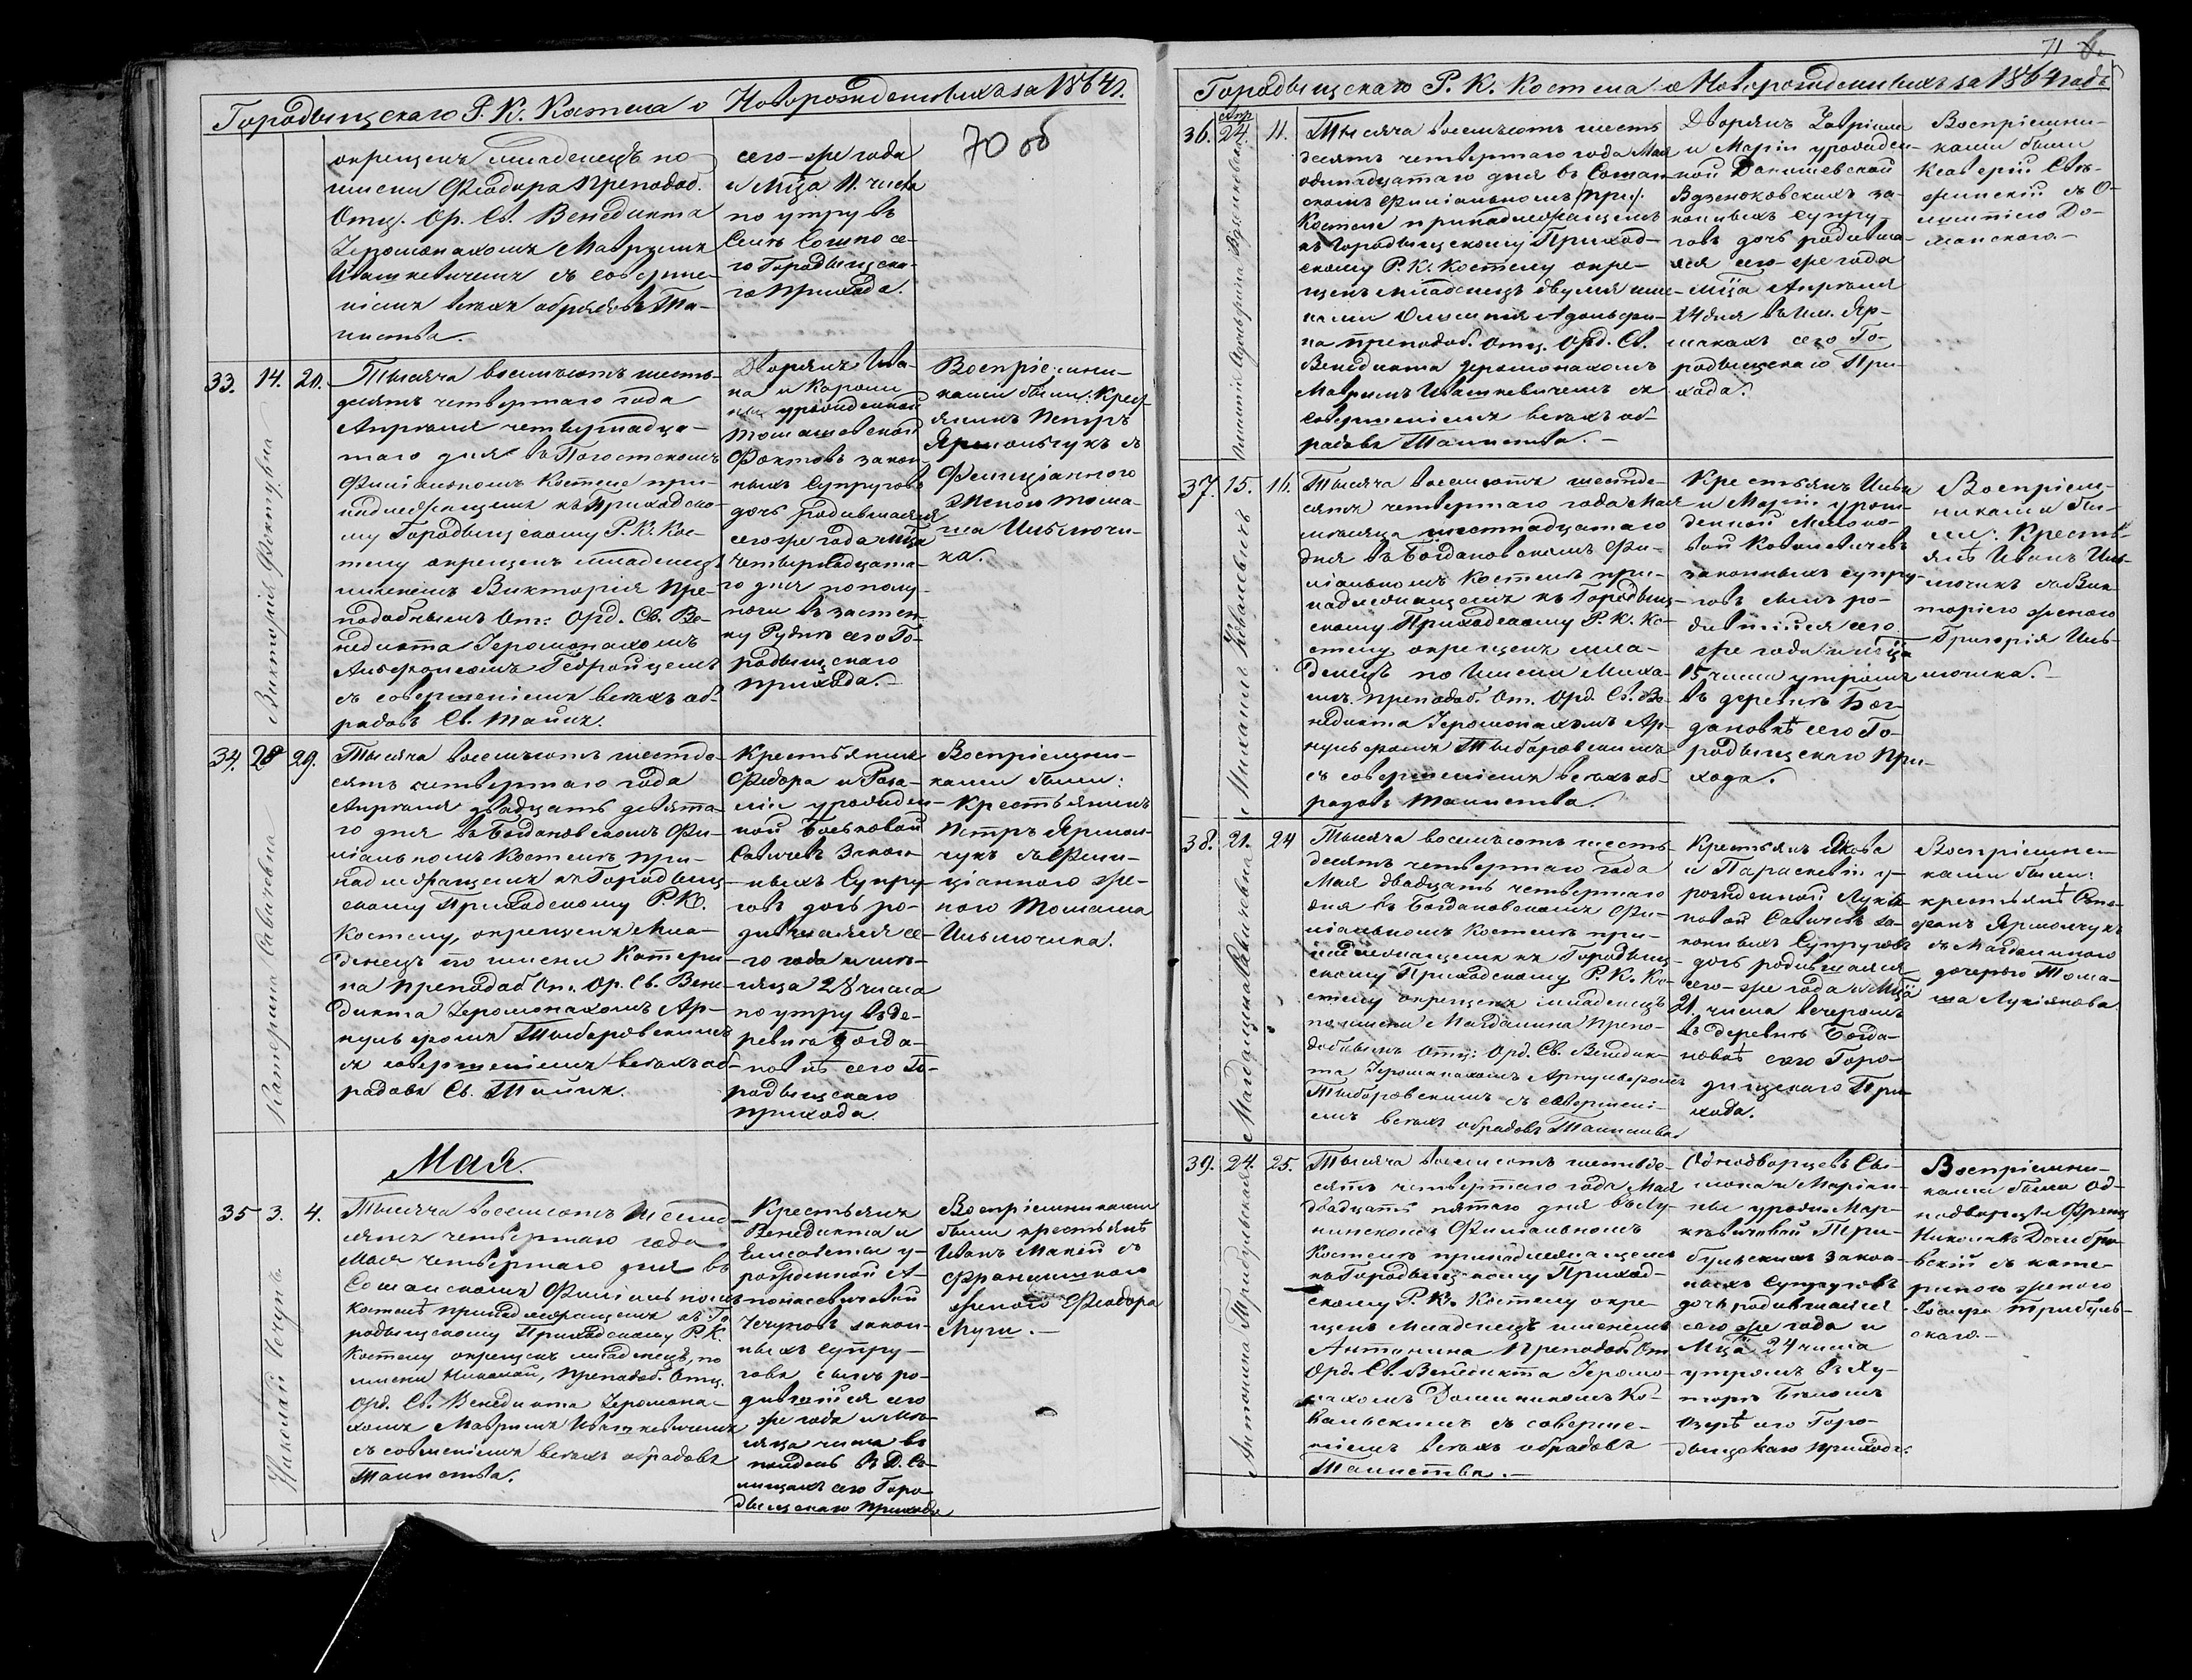 Городыщскаго Р. К. Костела о Новорожденныхъ за 1864 г.
70 об
окрещенъ младенецъ по
имени Феодора Преподоб.
Отц. Ор. Св. Венедикта
Іеромонахомъ Мавриемъ
Ивашкевичемъ съ соверше-
ніемъ всѣхъ обрядовъ Та-
инства.
сего-же года
и Мца 11. числа
по утру въ
Селѣ Сошно се-
го Городыщска-
го прихода.
33. 14. 20.
Викторія Фоктувна
Тысяча восемьсотъ шесть-
десятъ четвертаго года
Апрѣля четырнадца-
таго дня въ Погостскомъ
Филіальномъ Костелѣ при-
надлежащемъ къ Приходско-
му Городыщскому Р. К. Кос-
телу окрещенъ младенецъ
именемъ Викторія Пре-
подобнымъ От: Орд. Св. Ве-
недикта Іеромонахомъ
съ совершеніемъ всѣхъ об-
рядовъ Св. Тайнъ.
Дворянъ Ива-
на и Кароли-
ны урожденной
Томашевской
Фоктовъ закон-
ныхъ Супруговъ
дочь родившаяся
сего же года Мца
четырнадцата-
го дня по полу-
ночи въ застен-
ку Рудкѣ сего Го-
родыщскаго
прихода.-
Воспріемни-
ками были: Крест
янинъ Петръ
Ярмольчукъ съ
Фелиціанною
Женою Тома-
ша Ильючи-
ка.
34. 28 29.
Катерина Савичевна
Тысяча восемьсотъ шестьде-
сятъ четвертаго года
Апрѣля двадцать девята-
го дня въ Богдановскомъ Фи-
ліальномъ Костелѣ при-
надлежащемъ къ Городыщ-
скому Приходскому Р. К.
Костелу, окрещенъ мла-
денецъ по имени Катери-
на Преподоб От. Ор. Св. Вене-
дикта Іеромонахомъ Ар-
нульфомъ Тыборовскимъ
съ совершеніемъ всѣхъ об-
рядовъ Св. Тайнъ.
Крестьянъ
Федора и Роза-
ліи урожден-
ной Боськовой
Савичевъ Закон-
ныхъ Супру-
говъ дочь ро-
дившаяся се-
го года и мѣ-
сяца 28 числа
по утру въ де-
ревнѣ Богда-
новкѣ сего Го-
родыщскаго
прихода.
Воспріемни-
ками были:
Крестьянинъ
Петръ Ярмоль-
чукъ съ Фели-
ціанною же-
ною Томаша
Ильючика.
Мая.
35 3. 4.
Николай Чечукъ
Тысяча восемьсотъ шестьде-
сятъ четвертаго года
Мая четвертаго дня въ
Сошанскомъ Филіальномъ
Костелѣ принадлежащемъ къ Го-
родыщскому Приходскому Р. К.
Костелу окрещенъ младенецъ, по
имени Николай, Преподоб. Отц.
Орд. Св. Венедикта Іеромона-
хомъ Мавриемъ Ивашкевичемъ
съ совершеніемъ всѣхъ обрядовъ
Таинства.
Крестьянъ
Венедикта и
Елисаветы у-
рожденной А-
понасевичевой
Чечуковъ закон-
ныхъ Супру-
говъ сынъ ро-
дившійся сего
же года и мѣ-
сяца числа въ
полдень въ Д. Са-
мицахъ сего Горо-
дыщскаго прихода
Воспріемниками
были крестьянѣ
Иванъ Макей съ
Францишкою
женою Феодора
Муги.-
71
Городыщскаго Р. К. Костела о Новорожденныхъ за 1864 годъ
36. Апр 24. 11.
Тысяча восемьсотъ шесть
десятъ четвертаго года Мая
одинадцатаго дня въ Сошан-
скомъ Филіальномъ
Костелѣ принадлежащемъ
къ Городыщскому Приход-
скому Р. К. Костелу окре-
щенъ младенецъ двумя име-
нами Адольфи-
на преподоб. Отц. Орд. Св.
Венедикта Іеромонахомъ
Мавриемъ Ивашкевичемъ съ
совершеніемъ всѣхъ об-
рядовъ Таинства.-
Дворянъ Гавріила
и Маріи урожден-
ной Данишевской
Вдзенковскихъ за-
конныхъ Супру-
говъ дочь родивша-
яся сего-же года
мца Апрѣля
24 дня въ Им. Яр-
шакахъ сего Го-
родыщскаго При-
хода.
Воспріемни-
ками были
Ксаверій Свѣ-
жинскій съ О-
лимпіею До-
манскою.-
37. 15. 16.
Михаилъ Ковалевичъ
Тысяча восемьсотъ шестьде-
сятъ четвертаго года Мая
мѣсяца шестнадцатаго
дня въ Богдановскомъ Фи-
ліальномъ Костелѣ при-
надлежащемъ къ Городыщ-
скому Приходскому Р. К. Ко-
стелу окрещенъ мла-
денецъ по Имени Миха-
илъ преподоб. От. Орд. Св. Ве-
недикта Іеромонахомъ Ар-
нульфомъ Тыборовскимъ
съ совершеніемъ всѣхъ об-
рядовъ Таинства.
Крестьянъ Ильи
и Маріи урож-
денной Милико-
вой Ковалевичевъ
законныхъ супру-
говъ сынъ ро-
дившійся сего
же года и мца
15 числа утромъ
въ деревнѣ Бог-
дановкѣ сего Го-
родыщскаго При-
хода.
Воспріем-
никами бы-
ли. Кресть-
янѣ Иванъ Иль-
ючикъ съ Вик-
торіею женою
Григорія Иль-
ючика.-
38. 21. 24
Магдалина Савичевна
Тысяча восемьсотъ шесть-
десятъ четвертаго года
Мая двадцать четвертаго
дня въ Богдановскомъ Фи-
ліальномъ Костелѣ при-
надлежащемъ къ Городыщ-
скому Приходскому Р. К. Ко-
стелу окрещенъ младенецъ
по имени Магдалина Препо-
добнымъ Отц: Орд. Св. Венедик-
та Іеромонахомъ Арнульфомъ
Тыборовскимъ съ совершені-
емъ всѣхъ обрядовъ Таинства
Крестьянъ Якова
и Параскевіи у-
рожденной Лукья-
новой Савичевъ за-
конныхъ Супруговъ
дочь родившаяся
сего-же года и Мца
21. числа вечеромъ
въ деревнѣ Богда-
новкѣ сего Горо-
дищскаго При-
хода.
Воспріемни-
ками были:
крестьянѣ Сте-
фанъ Ярмольчукъ
съ Магдалиною
дочерью Тома-
ша Лукіянова
39. 24. 25.
Антонина Трибульская
Тысяча восемьсотъ шестьде-
сятъ четвертаго года Мая
двадцать пятаго дня въ Лу-
нинскомъ Филіальномъ
Костелѣ принадлежащемъ
къ Городыщскому Приход-
скому Р. К. Костелу окре-
щенъ младенецъ именемъ
Антонина Преподоб. От
Орд. Св. Венедикта Іеромо-
нахомъ Доминикомъ Ко-
вальскимъ съ соверше-
ніемъ всѣхъ обрядовъ
Таинства.-
Однодворцевъ Си-
мона и Маріан-
ны урожд. Мар-
кевичевой Три-
бульскихъ закон-
ныхъ Супруговъ
дочь родившаяся
сего же года и
Мца 24 числа
утромъ въ Ху-
торѣ Бѣломъ
Озерѣ сего Горо-
дыщскаго прихода.
Воспріемни-
ками были од-
нодворцы Франц
Николаевъ Домбро-
вскій съ Кате-
риною женою
Іосифа Трибуль-
скаго.-